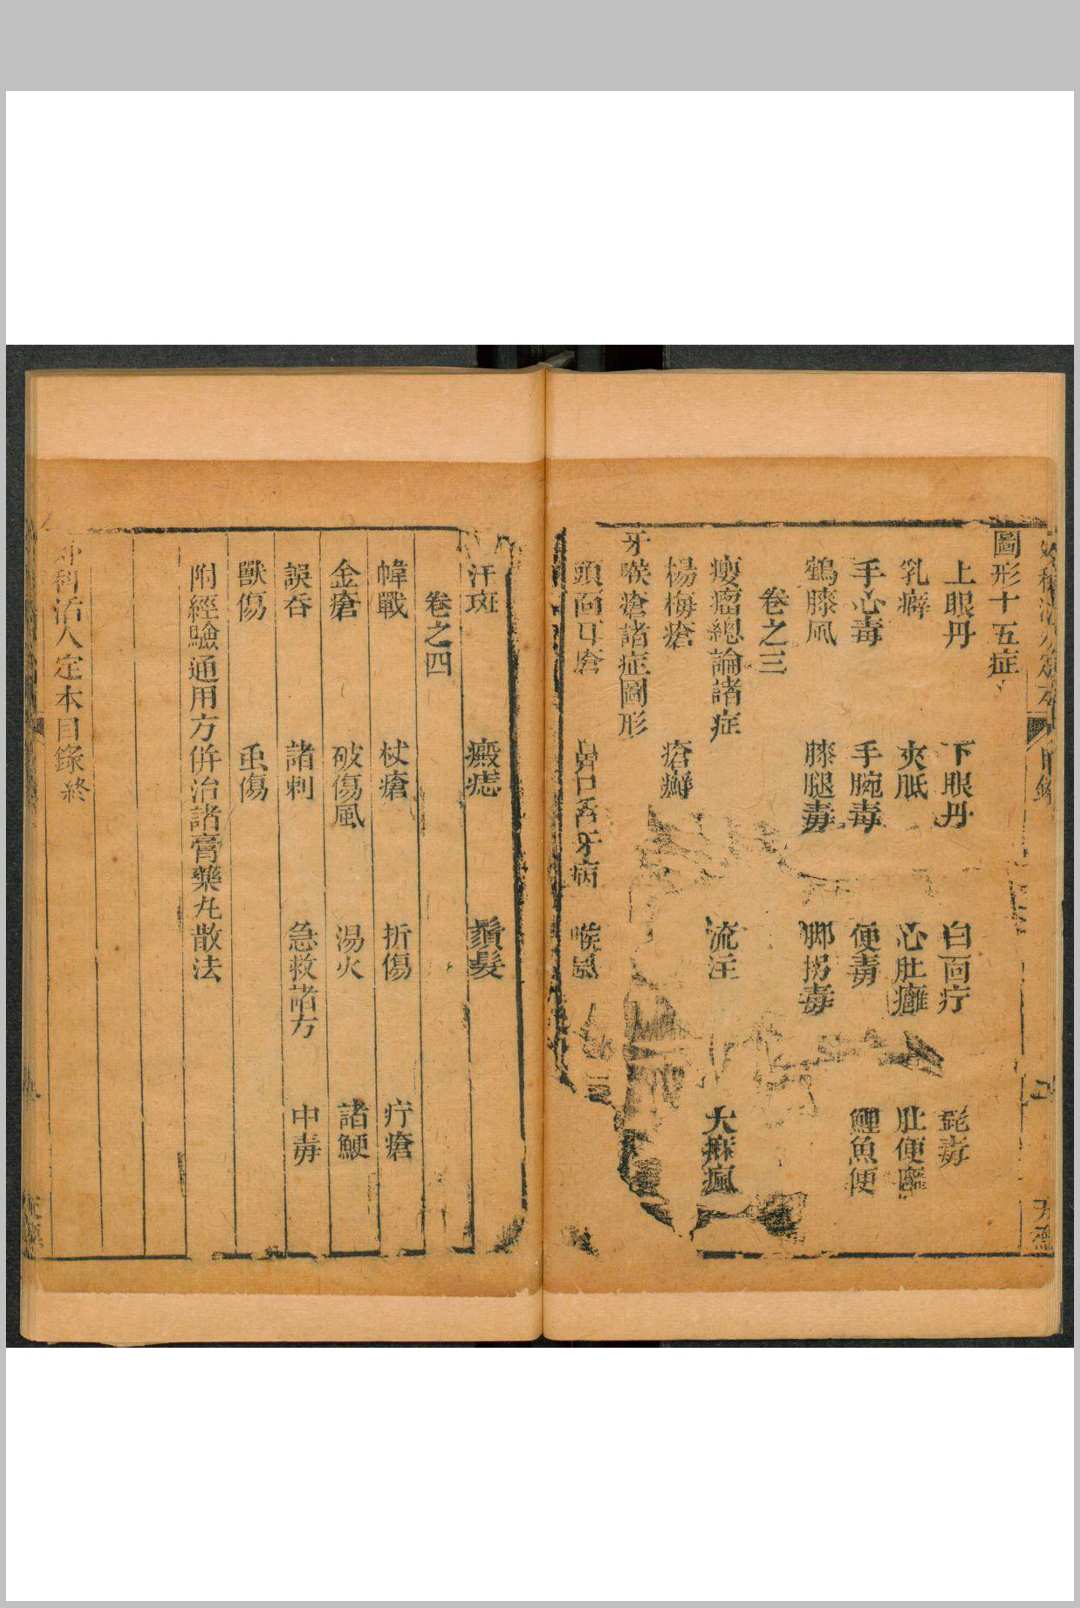 圖形十五症
上眼丹 下眼丹 白面疔 髭毒
乳癖 夾胝 心肚癰 肚便
手心毒 手腕毒 便毒 鯉魚便
鶴膝風 膝腿毒 脚拐毒
卷之三
癭瘤總論諸症 流注 大痳瘋
楊梅瘡 瘡癬
牙喉瘡諸症圖形
頭面耳瘡 鼻口舌牙病 喉
汗斑 癜痣 鬚髮
卷之四
幃戰 杖瘡 折傷 疔瘡
金瘡 破傷風 湯火 諸鯁
誤吞 諸刺 急救諸方 中毒
獸傷 虫傷
附經驗通用方併治諸膏藥丸散法
科活人定本目錄終